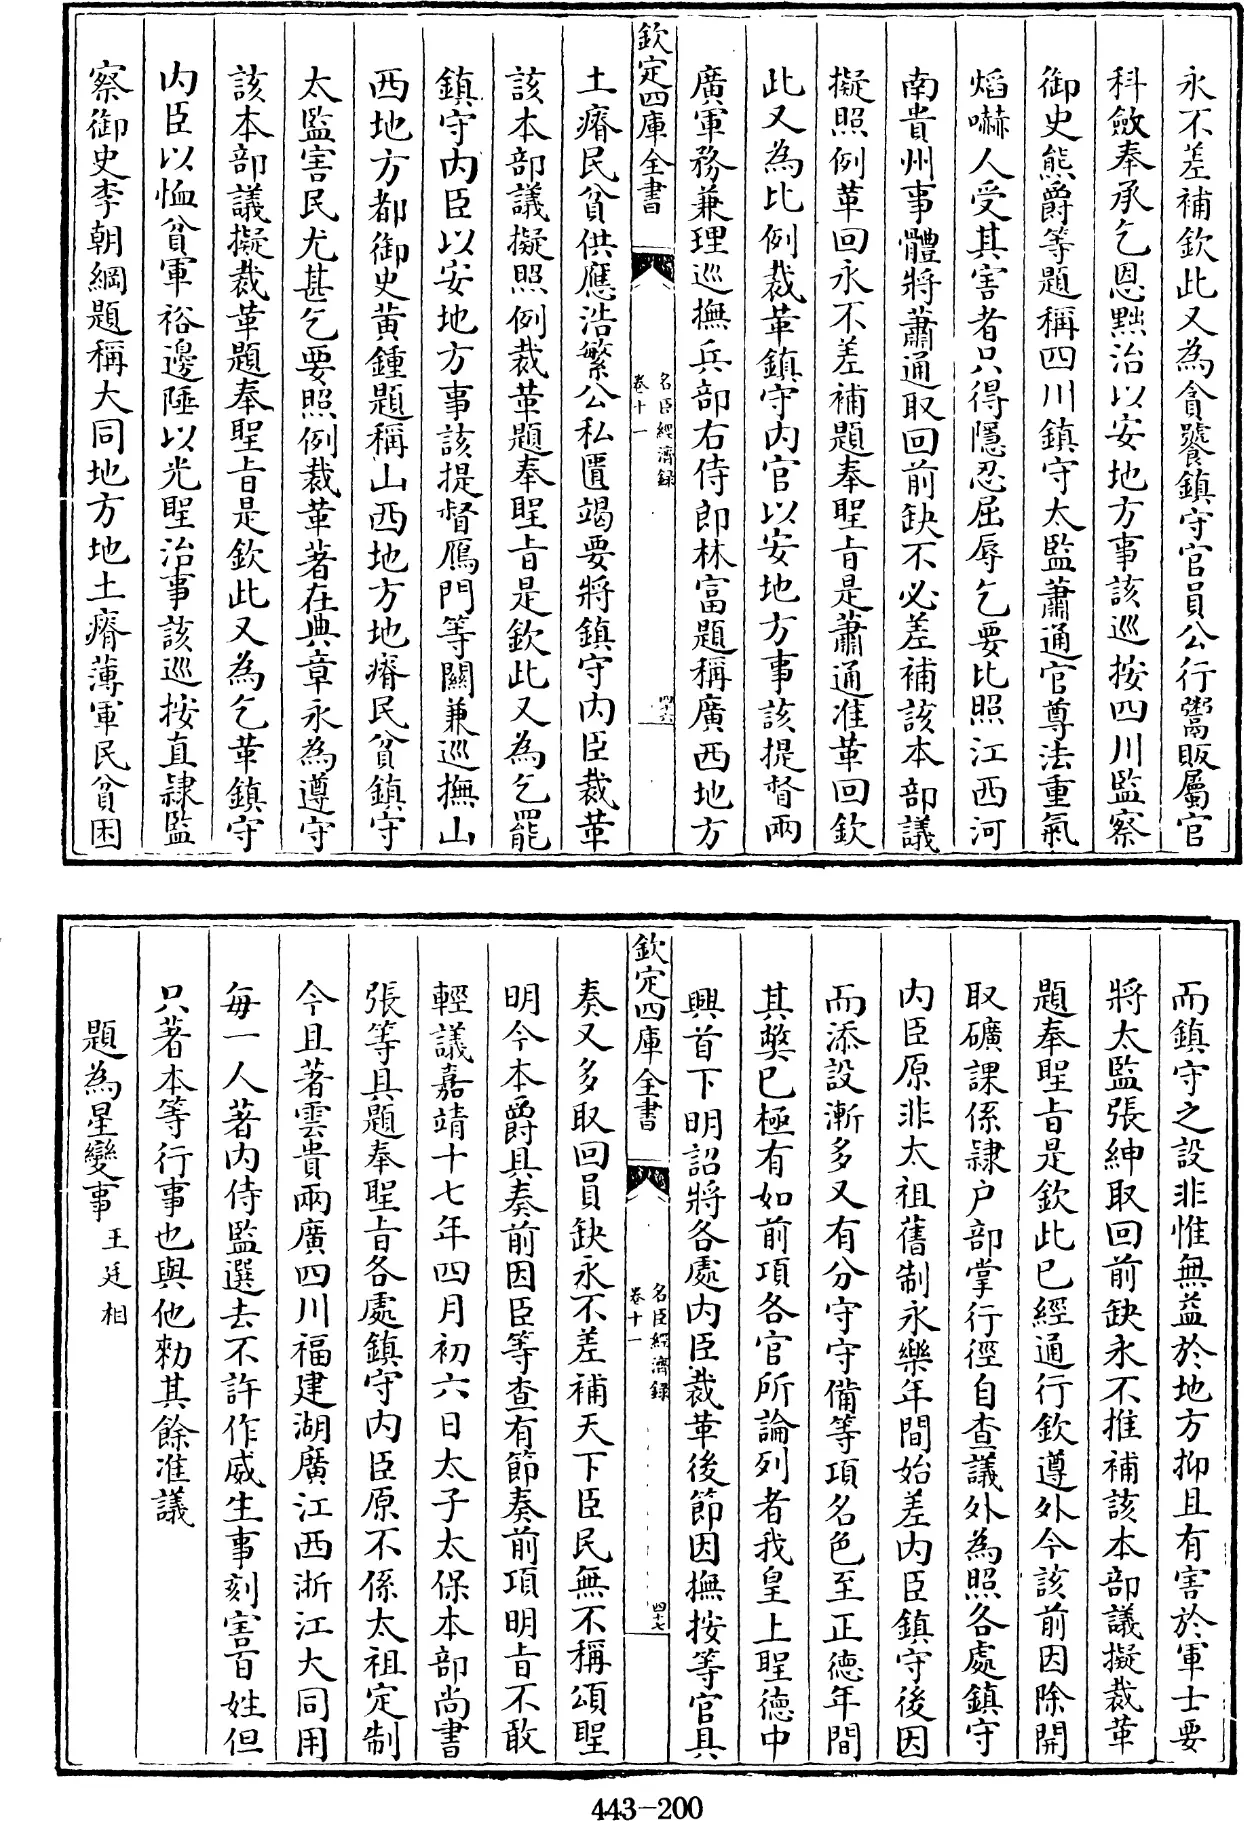 永不差補欽此又為貪饕鎮守官員公行鬻販屬官
科斂奉承乞恩黜治以安地方事該巡按四川監察
御史熊爵等題稱四川鎮守太監蕭通官尊法重氣
熖嚇人受其害者只得隱忍屈辱乞要比照江西河
南貴州事體將蕭通取回前缺不必差補該本部議
擬照例革回永不差補題奉聖旨是蕭通准革回欽
此又為比例裁革鎮守内官以安地方事該提督兩
廣軍務兼理巡撫兵部右侍郎林富題稱廣西地方
欽定四庫全書
名臣經濟録
卷十一
四十六
土瘠民貧供應浩繁公私匱竭要將鎮守内臣裁革
該本部議擬照例裁革題奉聖旨是欽此又為乞罷
鎮守内臣以安地方事該提督鴈門等關兼巡撫山
西地方都御史黄鍾題稱山西地方地瘠民貧鎮守
太監害民尤甚乞要照例裁革著在典章永為遵守
該本部議擬裁革題奉聖旨是欽此又為乞革鎮守
内臣以恤貧軍裕邊陲以光聖治事該巡按直隷監
察御史李朝綱題稱大同地方地土瘠薄軍民貧困
而鎮守之設非惟無益於地方抑且有害於軍士要
將太監張紳取回前缺永不推補該本部議擬裁革
題奉聖旨是欽此已經通行欽遵外今該前因除開
取礦課係隷户部掌行徑自查議外為照各處鎮守
内臣原非太祖舊制永樂年間始差内臣鎮守後因
而添設漸多又有分守守備等項名色至正德年間
其弊已極有如前項各官所論列者我皇上聖德中
興首下明詔將各處内臣裁革後節因撫按等官具
欽定四庫全書
名臣經濟録
卷十一
四十七
奏又多取回員缺永不差補天下臣民無不稱頌聖
明今本爵具奏前因臣等查有節奏前項明旨不敢
輕議嘉靖十七年四月初六日太子太保本部尚書
張等具題奉聖旨各處鎮守内臣原不係太祖定制
今且著雲貴兩廣四川福建湖廣江西浙江大同用
每一人著内侍監選去不許作威生事刻害百姓但
只著本等行事也與他勑其餘准議
題為星變事 王廷相
443-200